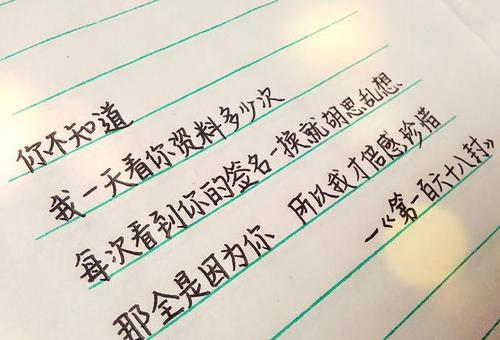 你不知道
我一天看你资料多少次
每次看到你的签名一换就胡思乱想、
那全是因为你 所以我才倍感珍惜
—《第一百六十八封》